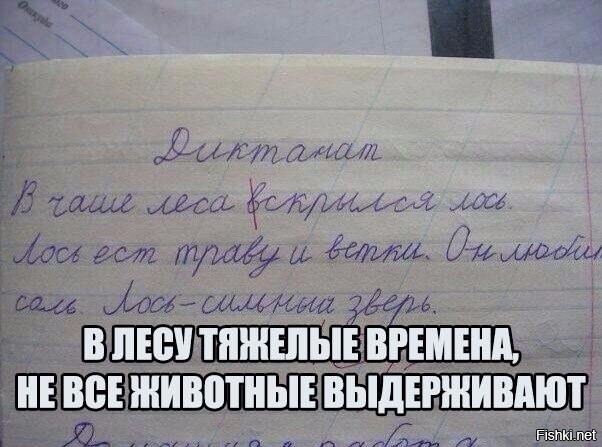 Диктанат
В чаше леса вскрылся лось.
Лось ест траву и ветки. Он любит
соль. Лось-сильный зверь.
В ЛЕСУ ТЯЖЕЛЫЕ ВРЕМЕНА,
НЕ ВСЕ ЖИВОТНЫЕ ВЫДЕРЖИВАЮТ
Домашняя работа
Fishki.net